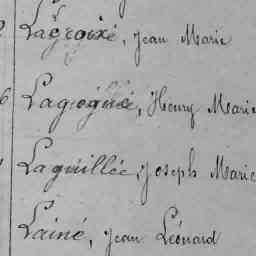 Lacroixé, Jean Marie
Lagognée, Henry Marie
Laguillée, Joseph Marie
Lainé, Jean Léonard